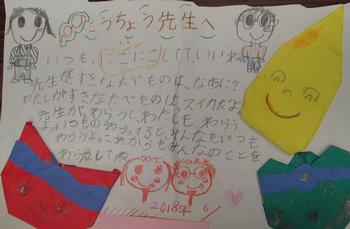 こうちょう先生へ
いつも、にこにこしてて、いいね。
先生がすきなたべものは、なあに?
わたしがすきなたべものは、スイカだよ。
先生が、わらうと、わたしも、わらう
よ。いつもわらってると、みんなもいつも
わらうよ。これからもみんなのことを
あいしてね
2018年 6